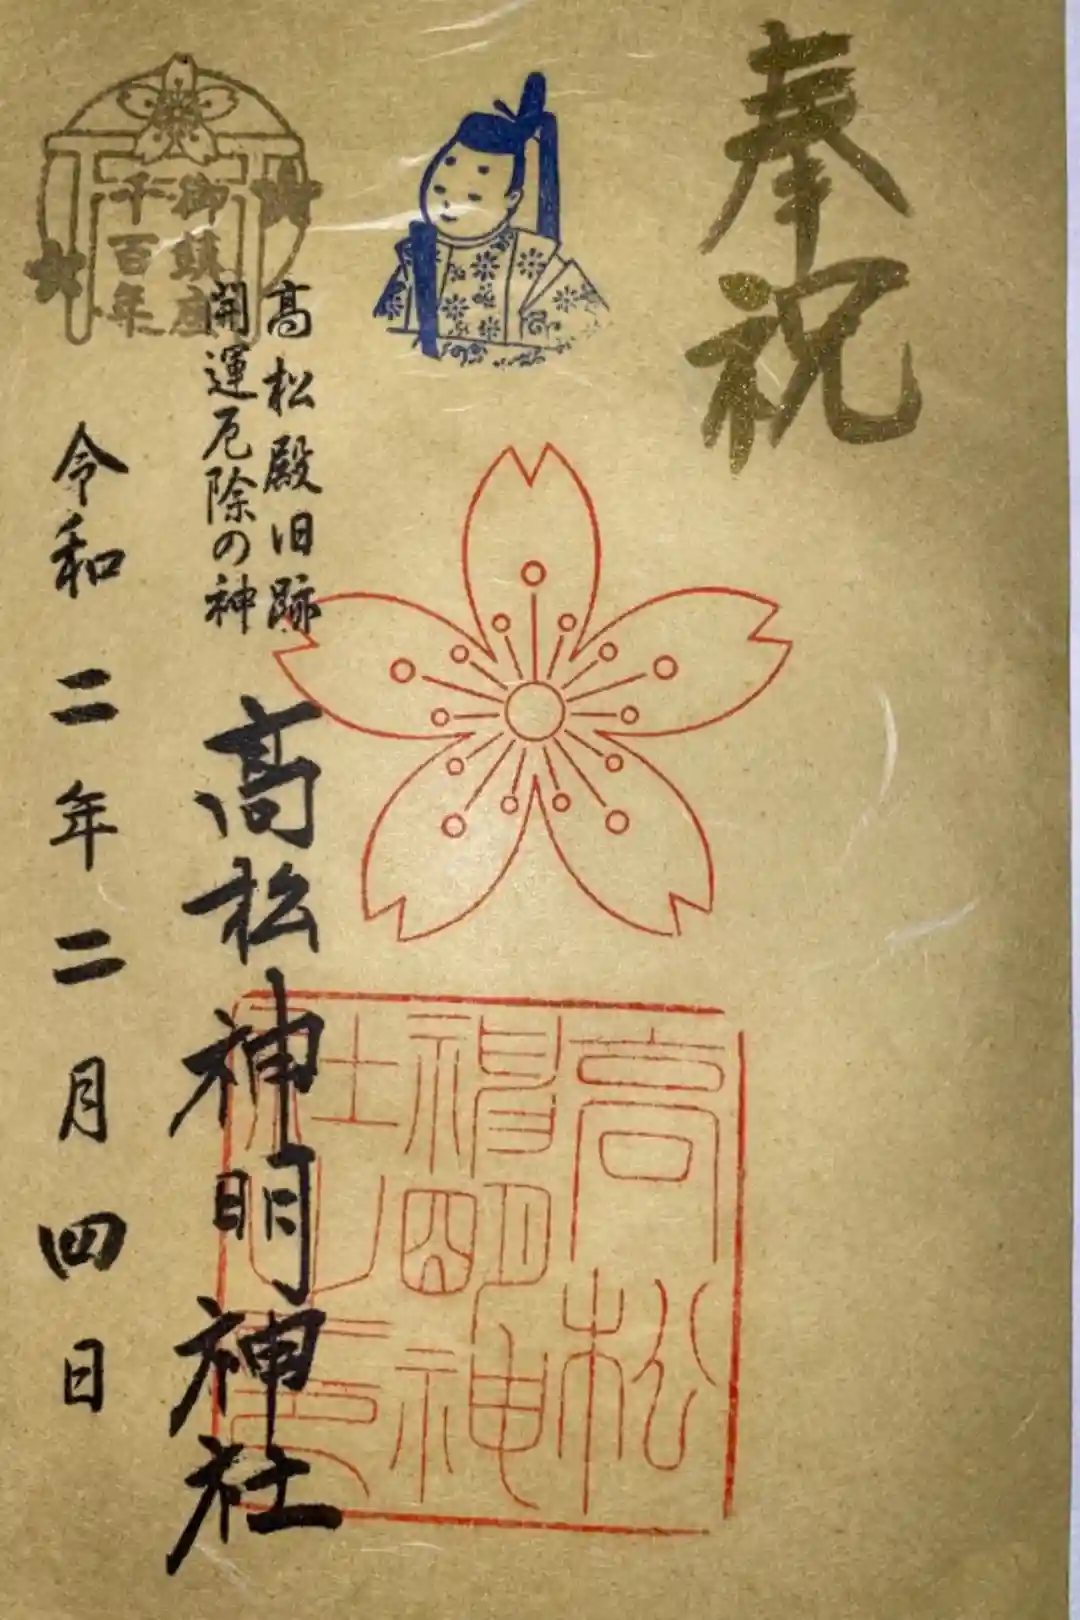 奉祝
高松殿旧跡
開運厄除の神
高松神明神社
御鎮座
千百年
令和二年二月四日
高松
神明神
社之印